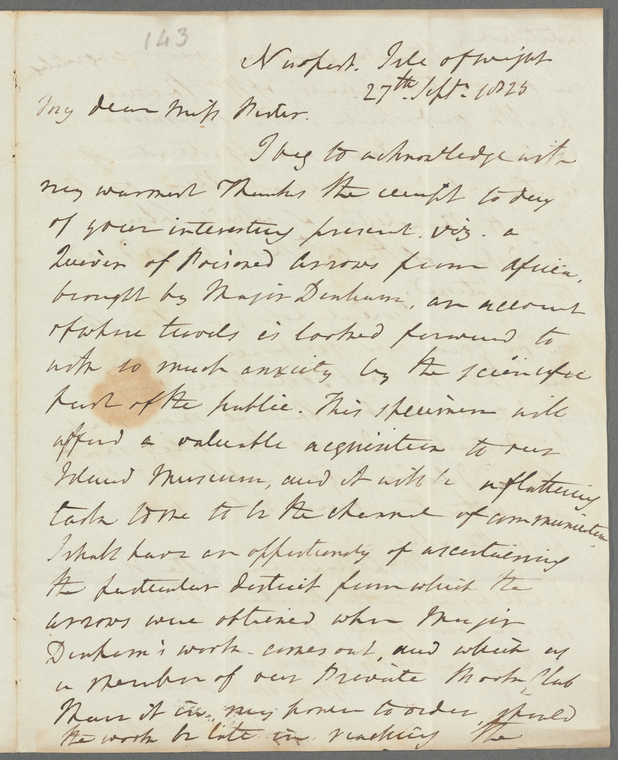 143
Newport. Isle of wight
27th Septr. 1825
My dear Miss Porter.
I beg to acknowledge with
my warmest Thanks the receipt to day
of your interesting present. viz. a
Quiver of Poisoned Arrows from Africa,
brought by Major Denham, an account
of whose travels is looked forward to
with so much anxiety by the scientific
part of the public. This specimen will
afford a valuable acquisition to our
Island Museum, and it will be a flattering
task to me to be the channel of communication.
I shall have an opportunity of ascertaining
the particular district from which the
arrows were obtained when Major
Denham's work comes out, and which as
a Member of our Private Book Club
I have it in my power to order, should
the work be late in reaching the